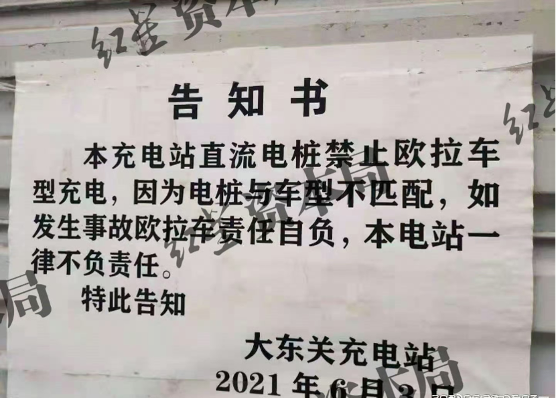 红星资本局
告知书
本充电站直流电桩禁止欧拉车
型充电，因为电桩与车型不匹配，如
发生事故欧拉车责任自负，本电站一
律不负责任。
红星资本局
特此告知
局
大东关充电站
2021年6月3日
本局
红